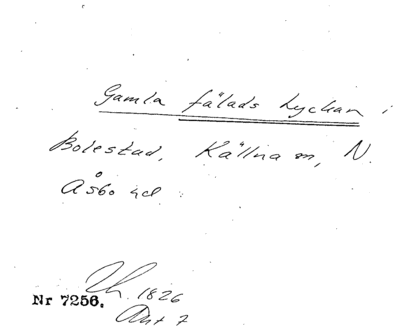 Gamla fälads Lyckan i
Bolestad, Källna sn, N.
Åsbo hd.
Lh. 1826
Nr 7256.
Akt 7